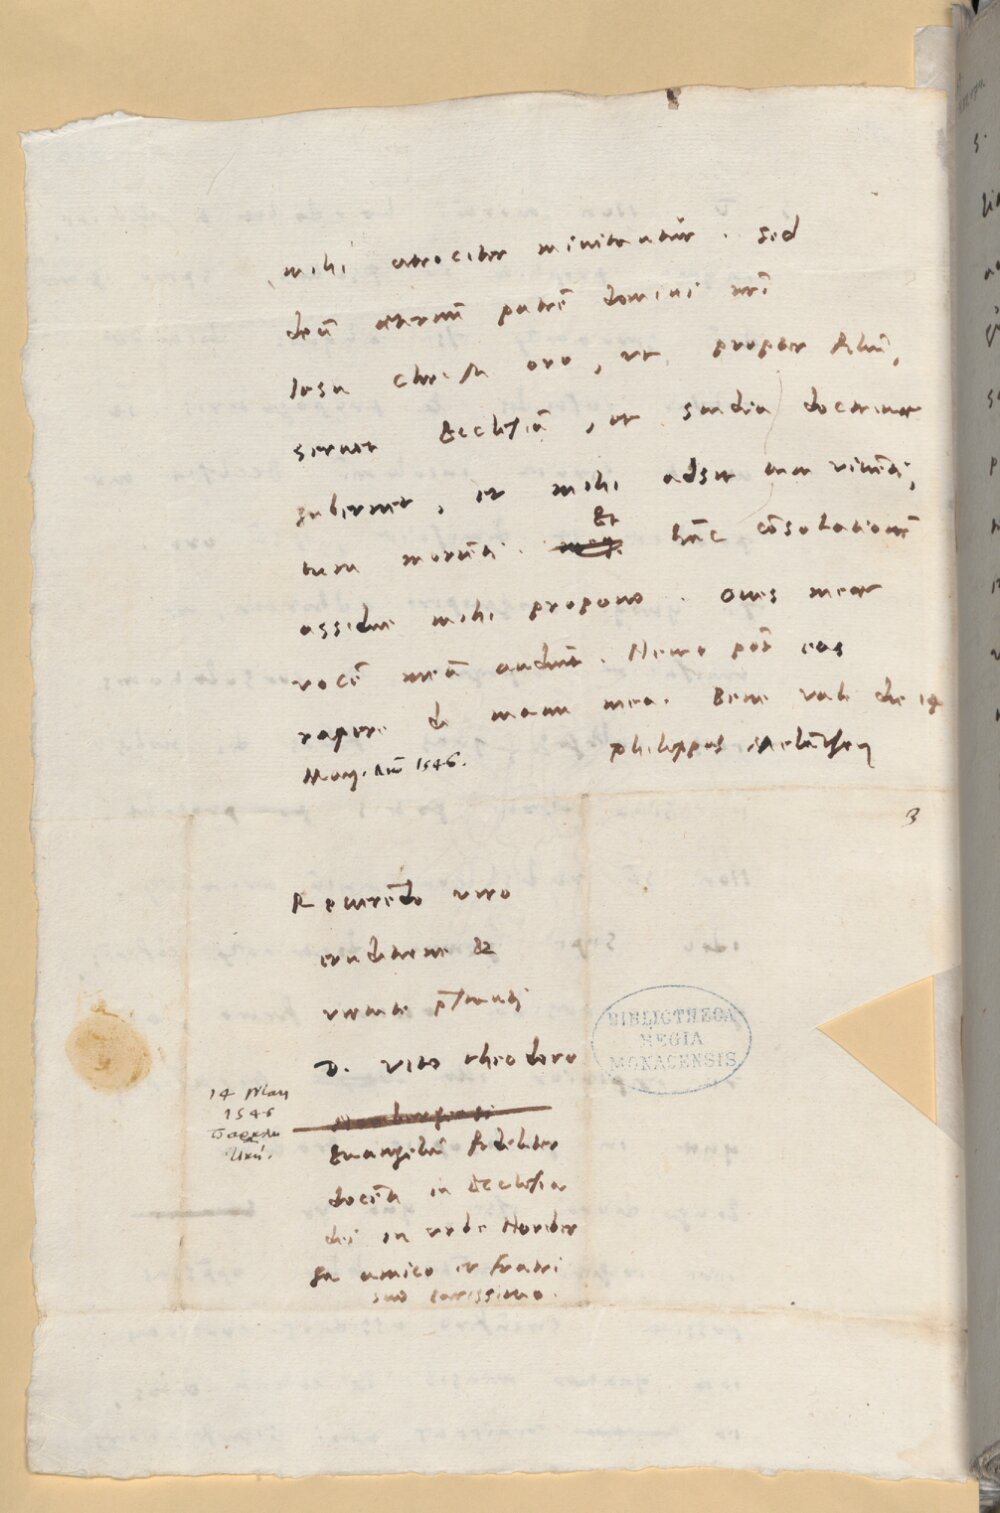 mihi atrociter minitantur. Sed
deū aeternū patrē domini nr̄i
Iesu Christi oro, ut propter filiū,
servet Ecclesiā, et studia doctrinae
gubernet, et mihi adsit tum viventi,
tum morienti. Et hāc cōsolationē
assidue mihi propono. Oves meae
vocē meā audiūt. Nemo pōt eas
rapere de manu mea. Bene vale die 14
Maij. Anno 1546. philippus Melāthon
3
Reverēdo viro
eruditione &
virtute p̄stanti
D. Vito theodoro
Evangeliū fideliter
docēti in Ecclesia
dei in urbe Noriber
ga amico et fratri
suo carissimo.
14 Maii
1546
BIBLIOTHECA
REGIA
MONACENSIS